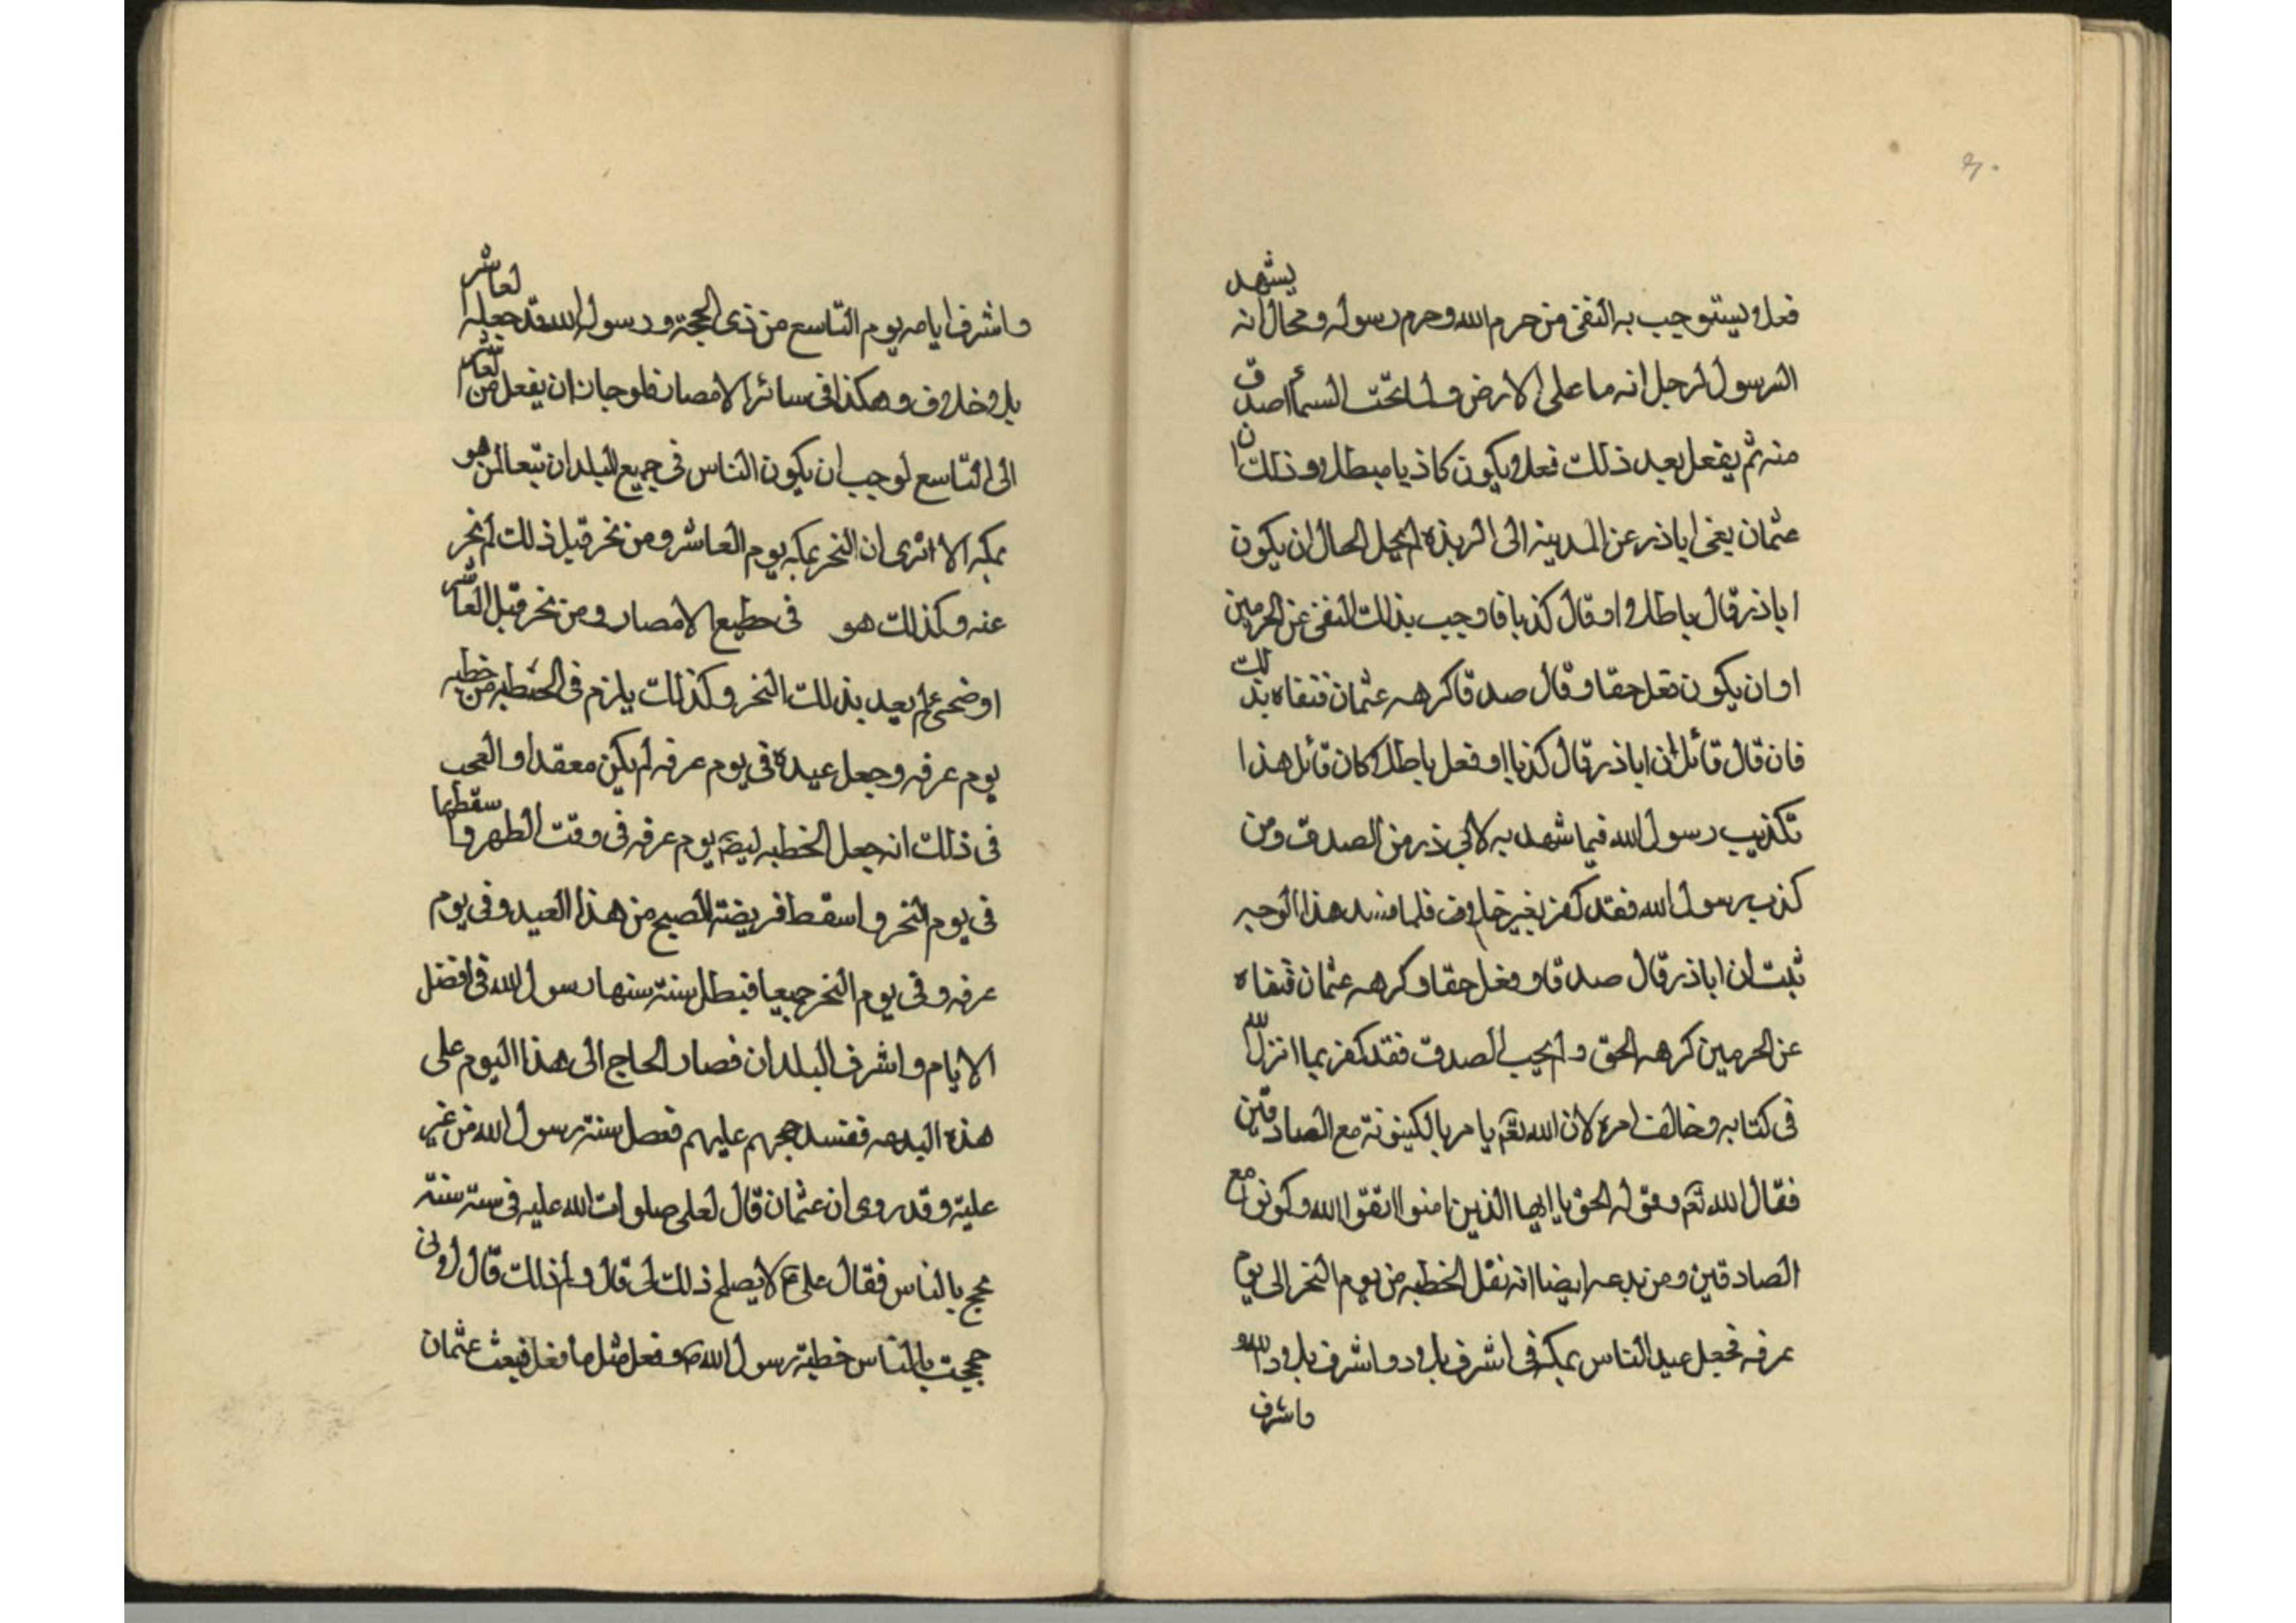 ۳۰
فعلا يستوجب به النفى من حرم الله وحرم رسوله ومحال انه يشهد
الرسول لرجل انه ما على الارض ولا تحت السماء اصدق
منه ثم يفعل بعد ذلك فعلا يكون كاذبا مبطلا وذلك ان
عثمان نفى اباذر عن المدينه الى الربذه لم يخل الحال ان يكون
اباذر قال باطلا او قال كذبا فاوجب بذلك النفى عن الحرمين
او ان يكون فعل حقا وقال صدقا كرهه عثمان فنفاه بذلك
فان قال قائل ان اباذر قال كذبا او فعل باطلا كان قائل هذا
تكذيب رسول الله فيما شهد به لابي ذر من الصدق ومن
كذب رسول الله فقد كفر بغير خلاف فلما فسد هذا الوجه
ثبت ان اباذر قال صدقا وفعل حقا وكرهه عثمان فنفاه
عن الحرمين كره الحق ولم يحب الصدق فقد كفر بما انزل الله
فى كتابه وخالف امره لان الله تعم يامر بالكينونة مع الصادقين
فقال الله تعم وقوله الحق يا ايها الذين امنوا اتقوا الله وكونوا مع
الصادقين ومن بدعه ايضا انه نقل الخطبه من يوم النحر الى يوم
عرفه فجعل عيد الناس بمكه فى اشرف بلاد واشرف بلاد الله
واشرف
واشرف ايامه يوم التاسع من ذى الحجة ورسول الله قد جعله العاشر
بلا خلاف وهكذا فى سائر الامصار فلو جاز ان يفعل من العاشر
الى التاسع لوجب ان يكون الناس فى جميع البلدان تبعا لمن هو
بمكه الا اترى ان النحر بمكه يوم العاشر ومن نحر قبل ذلك لم نحر
عنه وكذلك هو فى جميع الامصار ومن نحر قبل العاشر
او ضحى لم يعيد بذلك النحر وكذلك يلزم فى الخطبه من خطبه
يوم عرفه وجعل عيده فى يوم عرفه لم يكن معقدا والعجب
فى ذلك انه جعل الخطبه يوم عرفه فى وقت الظهر واسقطها
فى يوم النحر واسقط فريضة الصبح من هذا العيد وفى يوم
عرفه وفى يوم النحر جميعا فبطل سنة سنها رسول الله فى افضل
الايام واشرف البلدان فصار الحاج الى هذا اليوم على
هذه البدعه ففسد حجهم عليهم فعصل سنة رسول الله من غير
علية وقد روى ان عثمان قال لعلى صلوات الله عليه فى سته سنة
يحج بالناس فقال على ع لا يصلح ذلك لى قال ولم ذلك قال لانى
حججت بالناس خطبة رسول الله ص وفعل مثل ما فعل فبعث عثمان